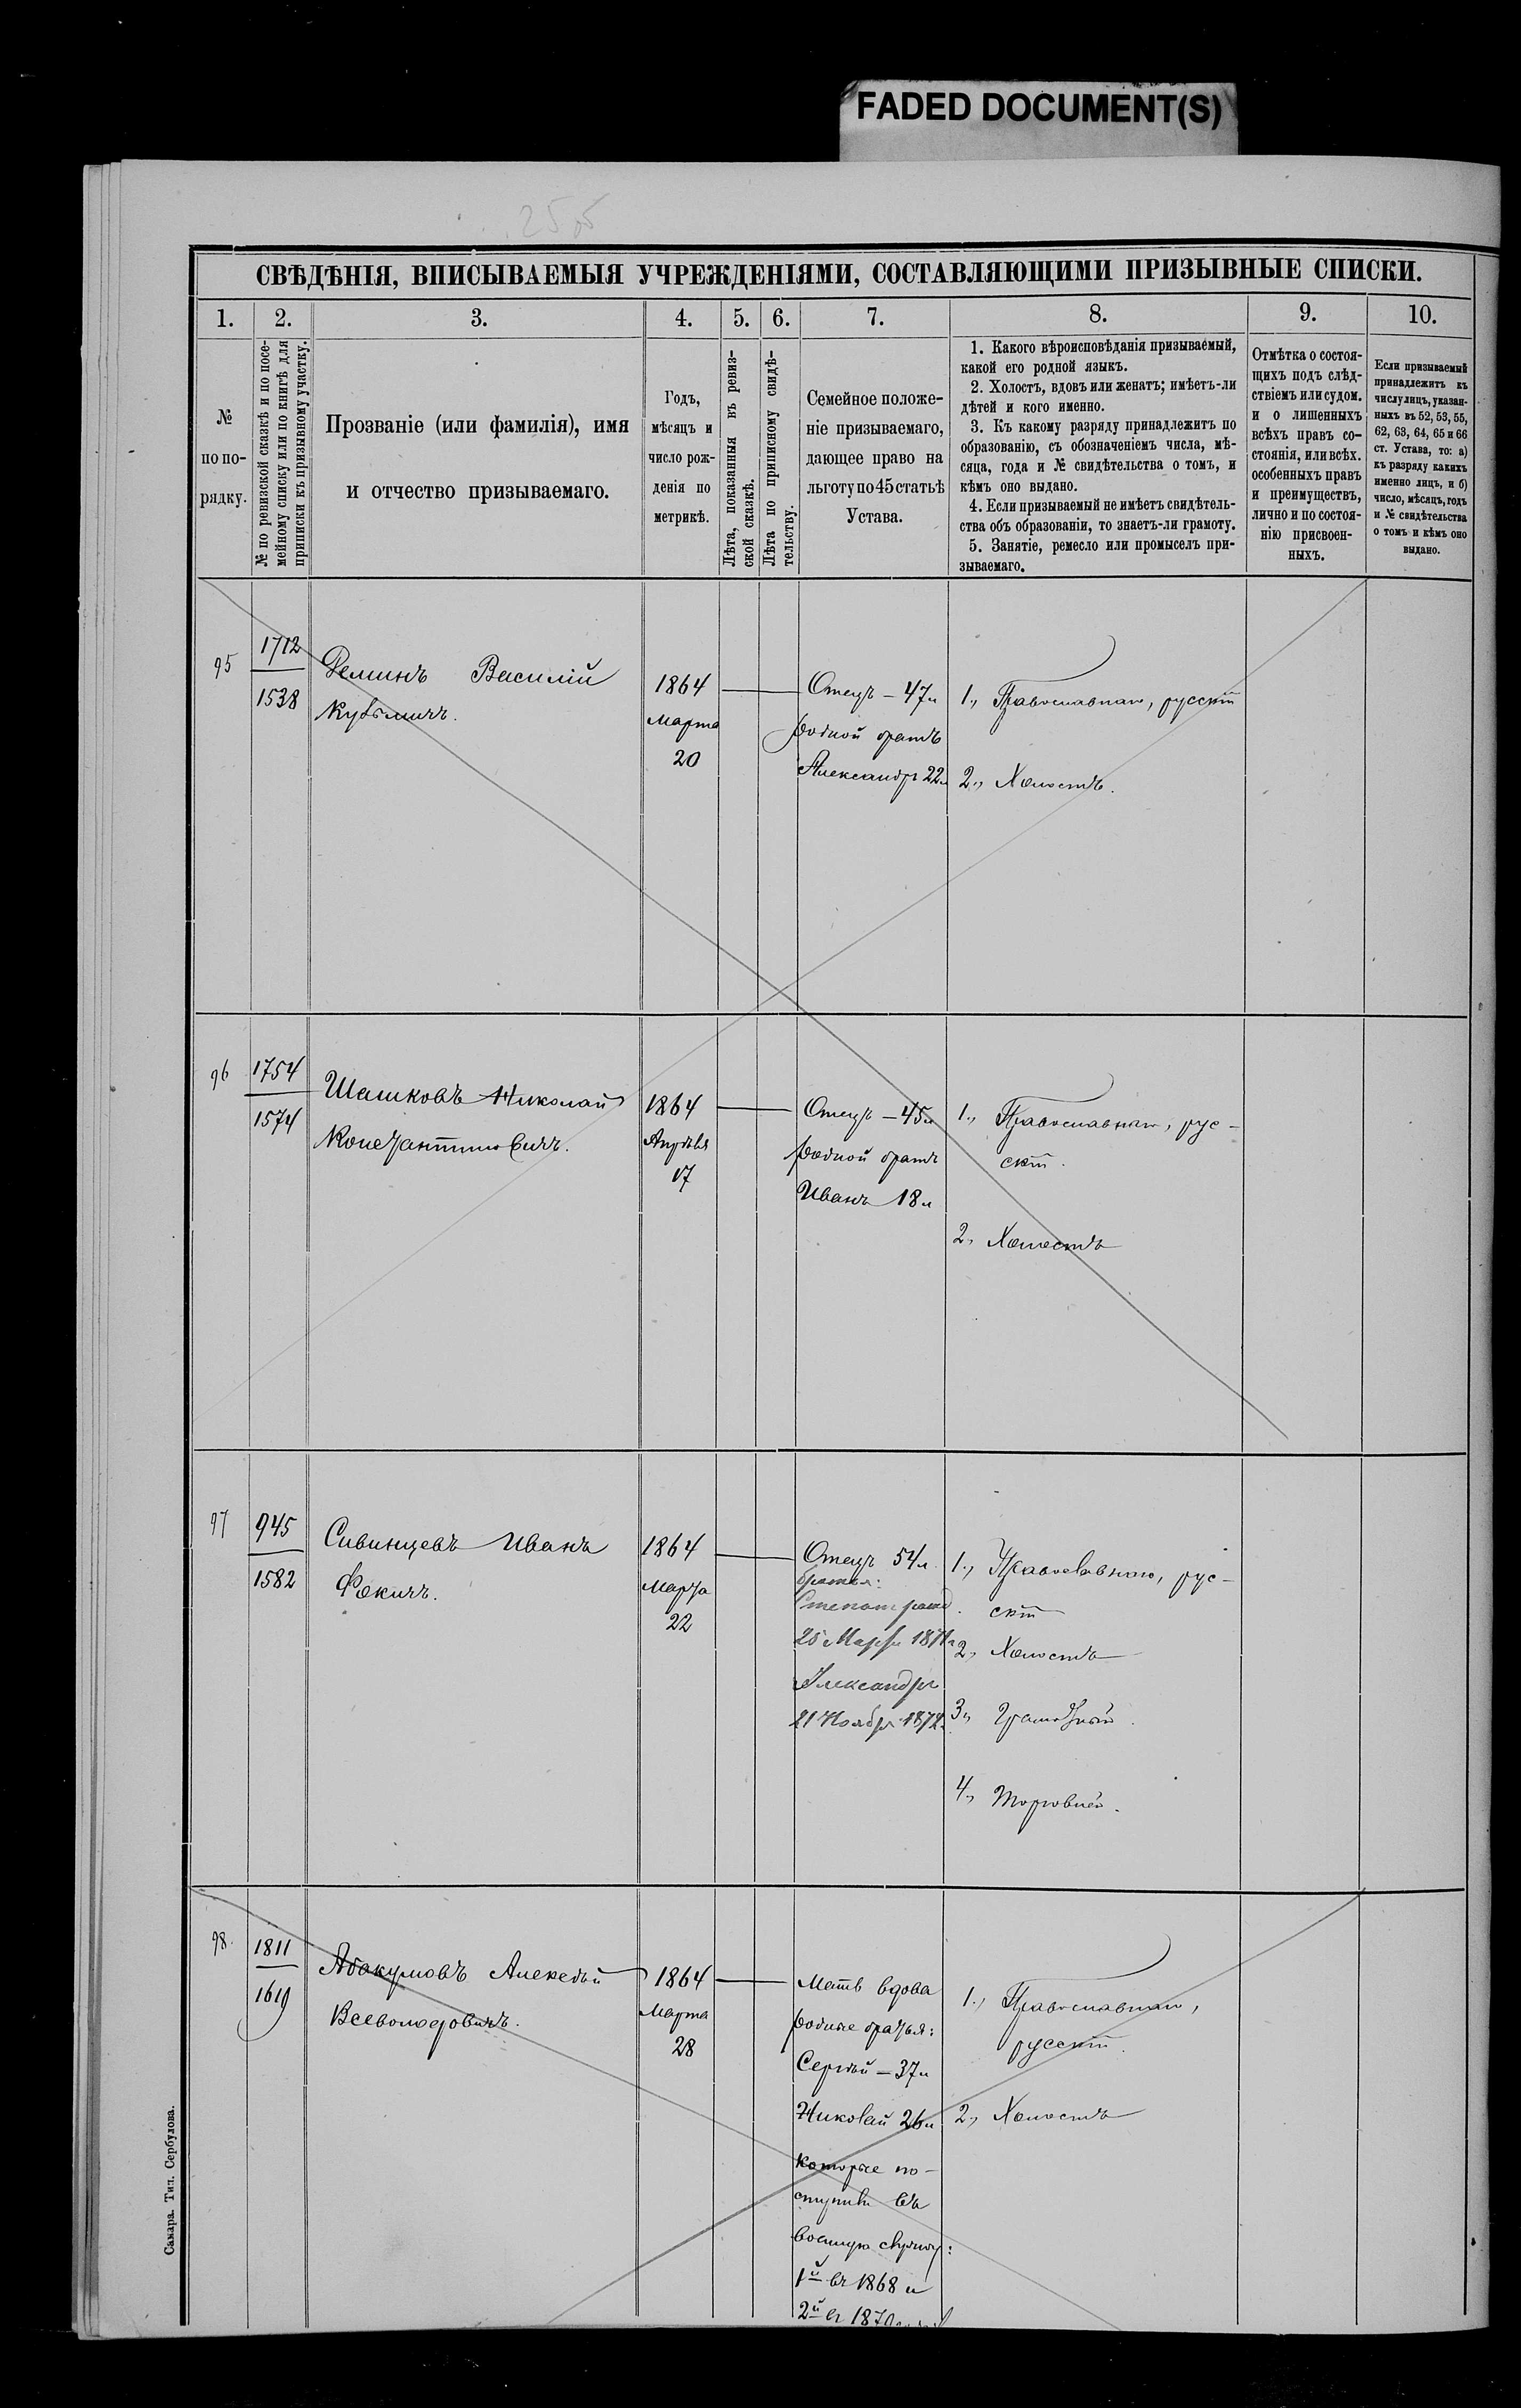 FADED DOCUMENT(S)
255
СВѢДѢНІЯ, ВПИСЫВАЕМЫЯ УЧРЕЖДЕНІЯМИ, СОСТАВЛЯЮЩИМИ ПРИЗЫВНЫЕ СПИСКИ.
1. 2. 3. 4. 5. 6. 7. 8. 9. 10.
№
по по-
рядку.
№ по ревизской сказкѣ и по посе-
мейному списку или по книгѣ для
приписки къ призывному участку.
Прозваніе (или фамилія), имя
и отчество призываемаго.
Годъ,
мѣсяцъ и
число рож-
денія по
метрикѣ.
Лѣта, показанныя въ ревиз-
ской сказкѣ.
Лѣта по приписному свидѣ-
тельству.
Семейное положе-
ніе призываемаго,
дающее право на
льготу по 45 статьѣ
Устава.
1. Какого вѣроисповѣданія призываемый,
какой его родной языкъ.
2. Холостъ, вдовъ или женатъ; имѣетъ-ли
дѣтей и кого именно.
3. Къ какому разряду принадлежитъ по
образованію, съ обозначеніемъ числа, мѣ-
сяца, года и № свидѣтельства о томъ, и
кѣмъ оно выдано.
4. Если призываемый не имѣетъ свидѣтель-
ства объ образованіи, то знаетъ-ли грамоту.
5. Занятіе, ремесло или промыселъ при-
зываемаго.
Отмѣтка о состоя-
щихъ подъ слѣд-
ствіемъ или судом.
и о лишенныхъ
всѣхъ правъ со-
стоянія, или всѣх.
особенныхъ правъ
и преимуществъ,
лично и по состоя-
нію присвоен-
ныхъ.
Если призываемый
принадлежитъ къ
числу лицъ, указан-
ныхъ въ 52, 53, 55,
62, 63, 64, 65 и 66
ст. Устава, то: а)
къ разряду какихъ
именно лицъ, и б)
число, мѣсяцъ, годъ
и № свидѣтельства
о томъ и кѣмъ оно
выдано.
95
1712
1538
Деминъ Василій
Кузьмичъ.
1864
Марта
20
Отецъ – 47 л
родной братъ
Александръ 22 л
1., Православнаго, русскій
2., Холостъ.
96
1754
1574
Шашковъ Николай
Константиновичъ.
1864
Апрѣля
17
Отецъ – 45 л
родной братъ
Иванъ 18 л
1., Православнаго, рус-
скій.
2., Холостъ
97
945
1582
Сивинцевъ Иванъ
Фокичъ.
1864
Марта
22
Отецъ 54 л.
братья:
Степанъ
25 Марта 1871
Александръ
21 Ноября 1872
1., Православнаго, рус-
скій
2., Холостъ
3., Грамотный.
4., Торговлей.
98.
1811
1619
Абакумовъ Алексѣй
Всеволодовичъ.
1864
Марта
28
Мать вдова
родные братья:
Сергѣй – 37 л
Николай 26 л
которые по-
ступили въ
военную службу:
1й въ 1868 и
2й въ 1870
1., Православнаго,
русскій.
2., Холостъ
Самара. Тип. Сербулова.